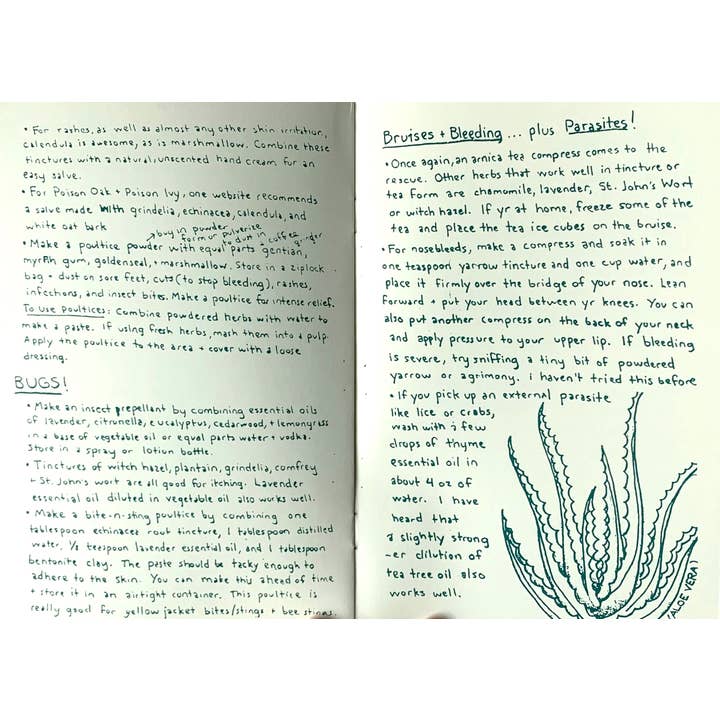 • For rashes, as well as almost any other skin irritation,
calendula is awesome, as is marshmallow. Combine these
tinctures with a natural, unscented hand cream for an
easy salve.
• For Poison Oak + Poison Ivy, one website recommends
a salve made with grindelia, echinacea, calendula, and
white oat bark
buy in powder
form or pulverize
to dust in coffee
• Make a poultice powder with equal parts gentian,
myrrh gum, goldenseal, + marshmallow. Store in a ziplock
bag + dust on sore feet, cuts (to stop bleeding), rashes,
infections, and insect bites. Make a poultice for intense relief.
To Use Poultices: Combine powdered herbs with water to
make a paste. If using fresh herbs, mash them into a pulp.
Apply the poultice to the area + cover with a loose
dressing.
BUGS!
• Make an insect repellant by combining essential oils
of lavender, citrunella, eucalyptus, cedarwood, + lemongrass
in a base of vegetable oil or equal parts water + vodka.
Store in a spray or lotion bottle.
• Tinctures of witch hazel, plantain, grindelia, comfrey
+ St. John's wort are all good for itching. Lavender
essential oil diluted in vegetable oil also works well.
• Make a bite-n-sting poultice by combining one
tablespoon echinacea root tincture, 1 tablespoon distilled
water, ⅛ teespoon lavender essential oil, and 1 tablespoon
bentonite clay. The paste should be tacky enough to
adhere to the skin. You can make this ahead of time
+ store it in an airtight container. This poultice is
really good for yellow jacket bites/stings + bee stings.
Bruises + Bleeding ... plus Parasites!
• Once again, an arnica tea compress comes to the
rescue. Other herbs that work well in tincture or
tea form are chamomile, lavender, St. John's Wort
or witch hazel. If yr at home, freeze some of the
tea and place the tea ice cubes on the bruise.
• For nosebleeds, make a compress and soak it in
one teaspoon yarrow tincture and one cup water, and
place it firmly over the bridge of your nose. Lean
forward + put your head between yr knees. You can
also put another compress on the back of your neck
and apply pressure to your upper lip. If bleeding
is severe, try sniffing a tiny bit of powdered
yarrow or agrimony. I haven't tried this before
• If you pick up an external parasite
like lice or crabs,
wash with a few
drops of thyme
essential oil in
about 4 oz of
water. I have
heard that
a slightly strong
-er dilution of
tea tree oil also
works well.
(ALOE VERA)